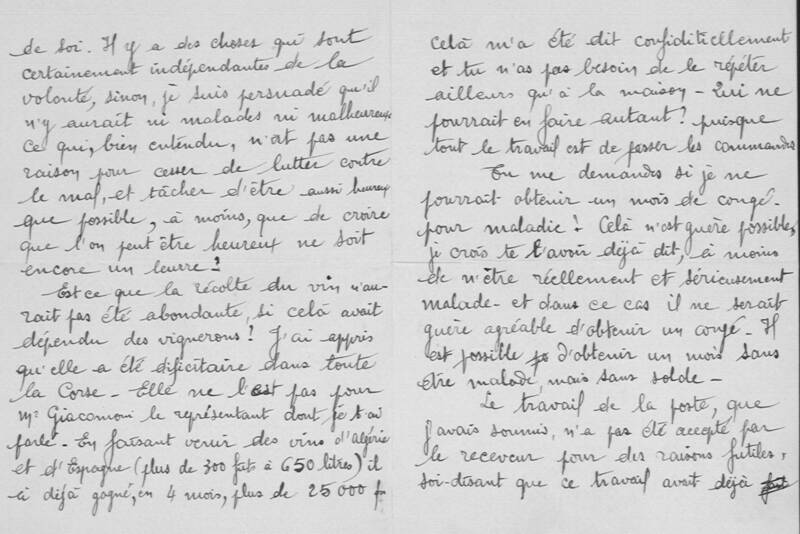 de soi. Il y a des choses qui sont
certainement indépendantes de la
volonté, sinon, je suis persuadé qu'il
n'y aurait ni malades ni malheureux
Ce qui, bien entendu, n'est pas une
raison pour cesser de lutter contre
le mal, et tâcher d'être aussi heureux
que possible, à moins, que de croire
que l'on peut être heureux ne soit
encore un leurre?
Est ce que la récolte du vin n'au-
rait pas été abondante, si celà avait
dépendu des vignerons! J'ai appris
qu'elle a été dificitaire dans toute
la Corse - Elle ne l'est pas pour
Mr Giacomoni le représentant dont je t'ai
parlé - En faisant venir des vins d'algérie
et d'Espagne (plus de 300 futs à 650 litres) il
à déjà gagné, en 4 mois, plus de 25000 f
Celà m'a été dit confiditiellement
et tu n'as pas besoin de le répéter
ailleurs qu'à la maison - Qui ne
pourrait en faire autant? puisque
tout le travail est de passer les commandes
Tu me demandes si je ne
pourrait obtenir un mois de congé
pour maladie! Celà n'est guère possible,
je crois te l'avoir déjà dit, à moins
de n'être réellement et sérieusement
malade - et dans ce cas il ne serait
guère agréable d'obtenir un congé - Il
est possible d'obtenir un mois sans
être malade, mais sans solde -
Le travail de la poste, que
j'avais soumis, n'a pas été accepté par
le receveur pour des raisons futiles,
soi-disant que ce travail avait déjà